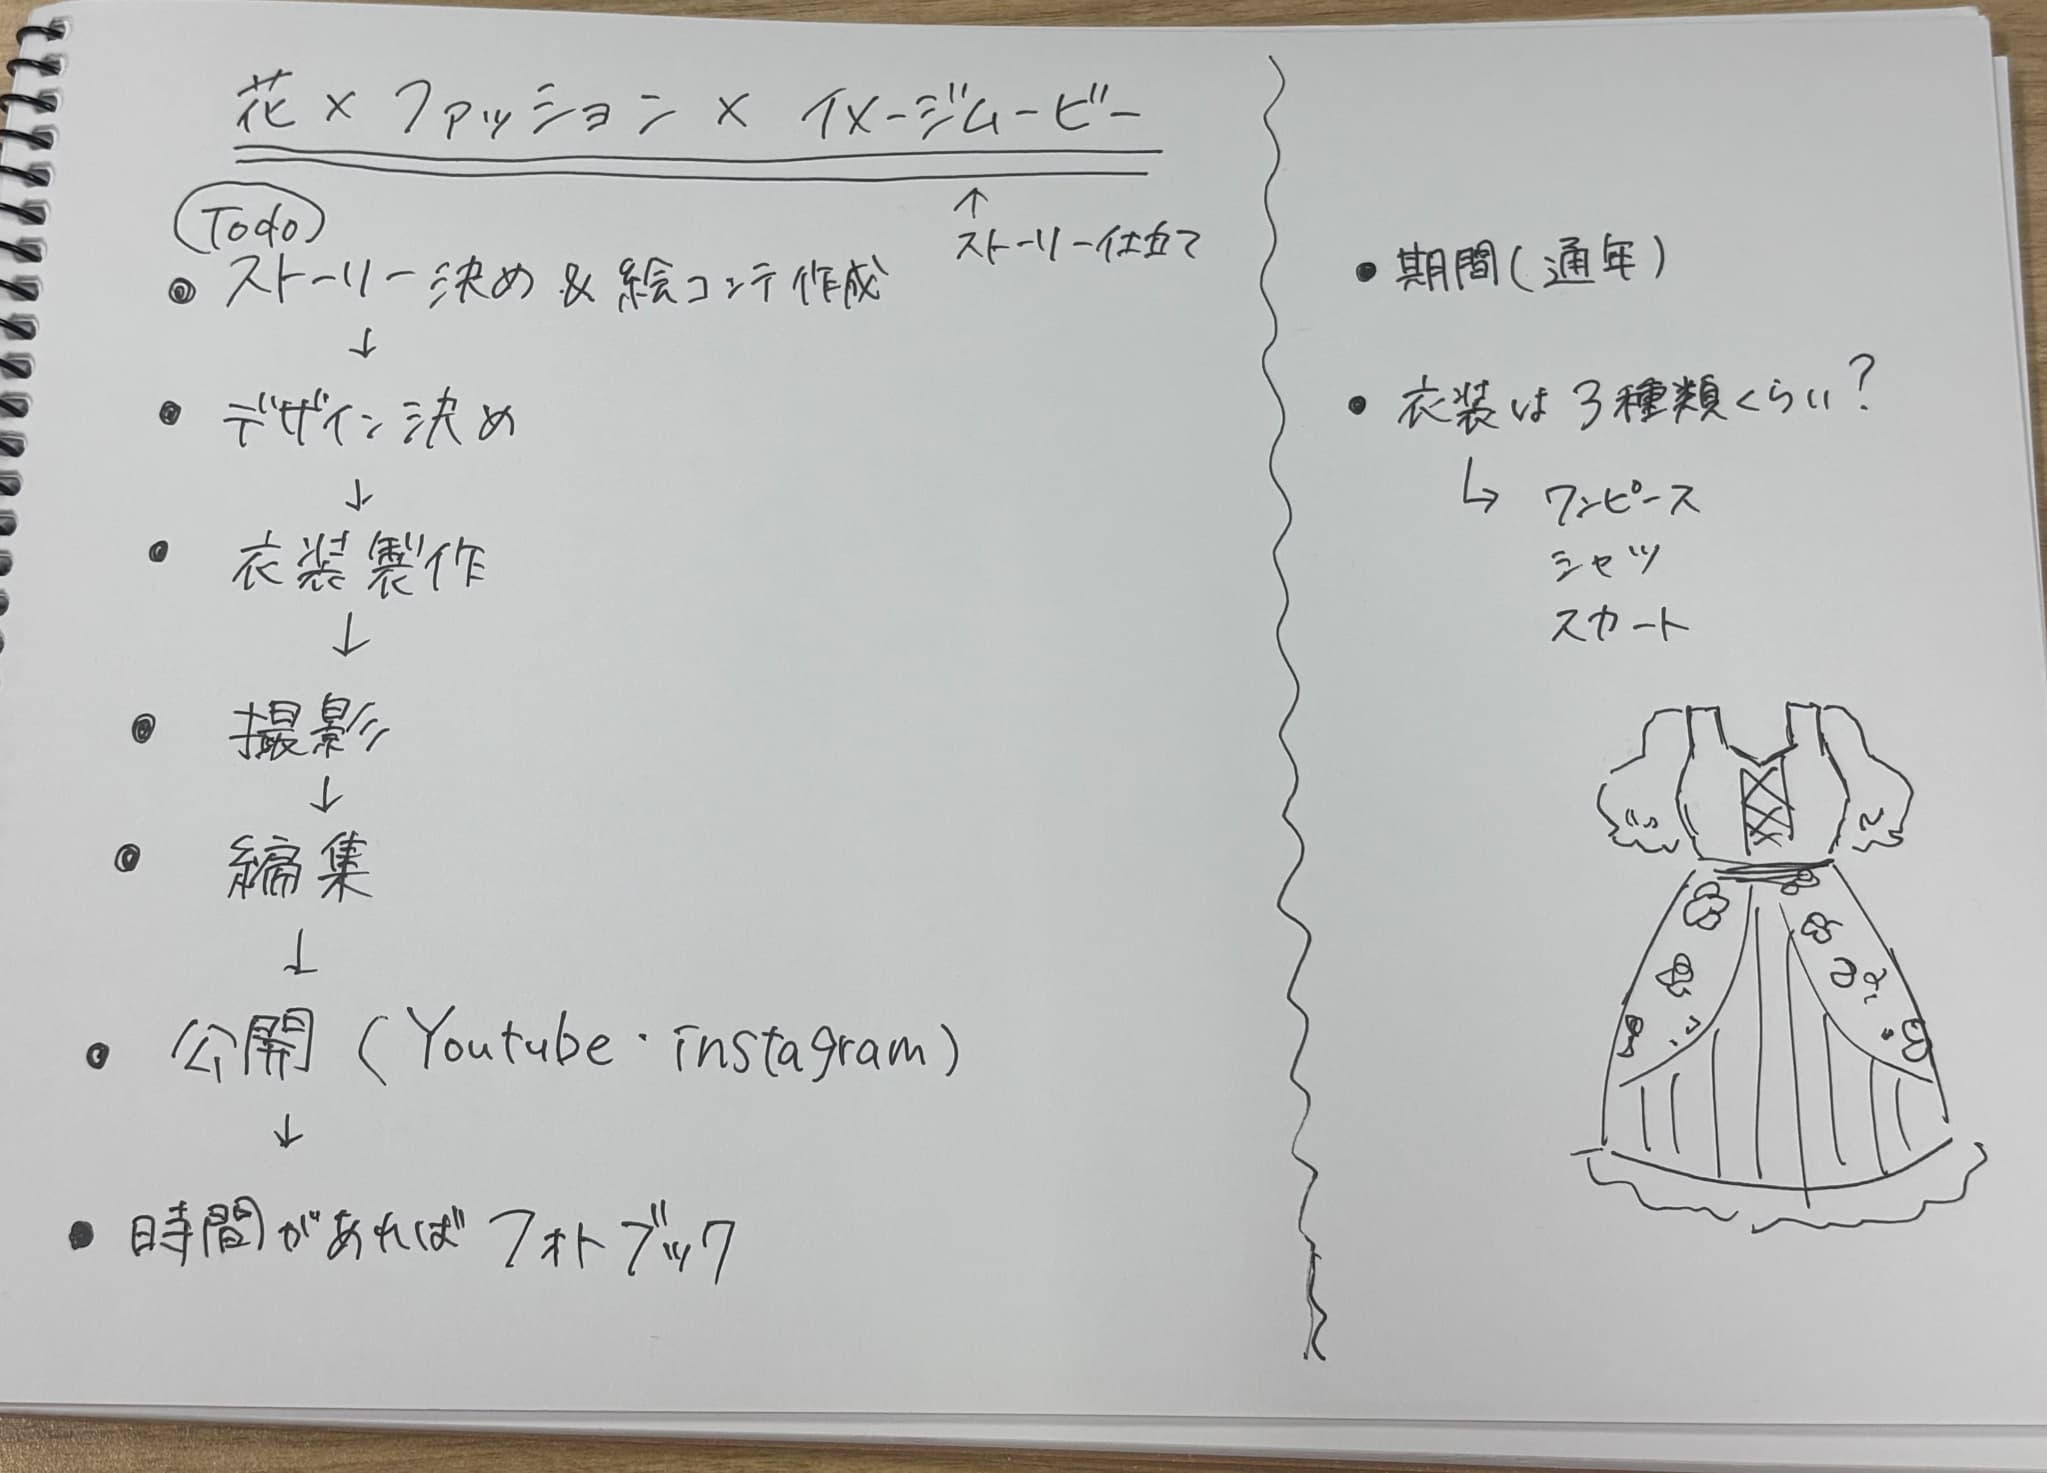 花×ファッション×イメージムービー
↑
ストーリー仕立て
Todo
● ストーリー決め&絵コンテ作成
↓
● デザイン決め
↓
● 衣装製作
↓
● 撮影
↓
● 編集
↓
● 公開(Youtube・instagram)
↓
● 時間があればフォトブック
● 期間(通年)
● 衣装は3種類くらい?
↳ ワンピース
シャツ
スカート